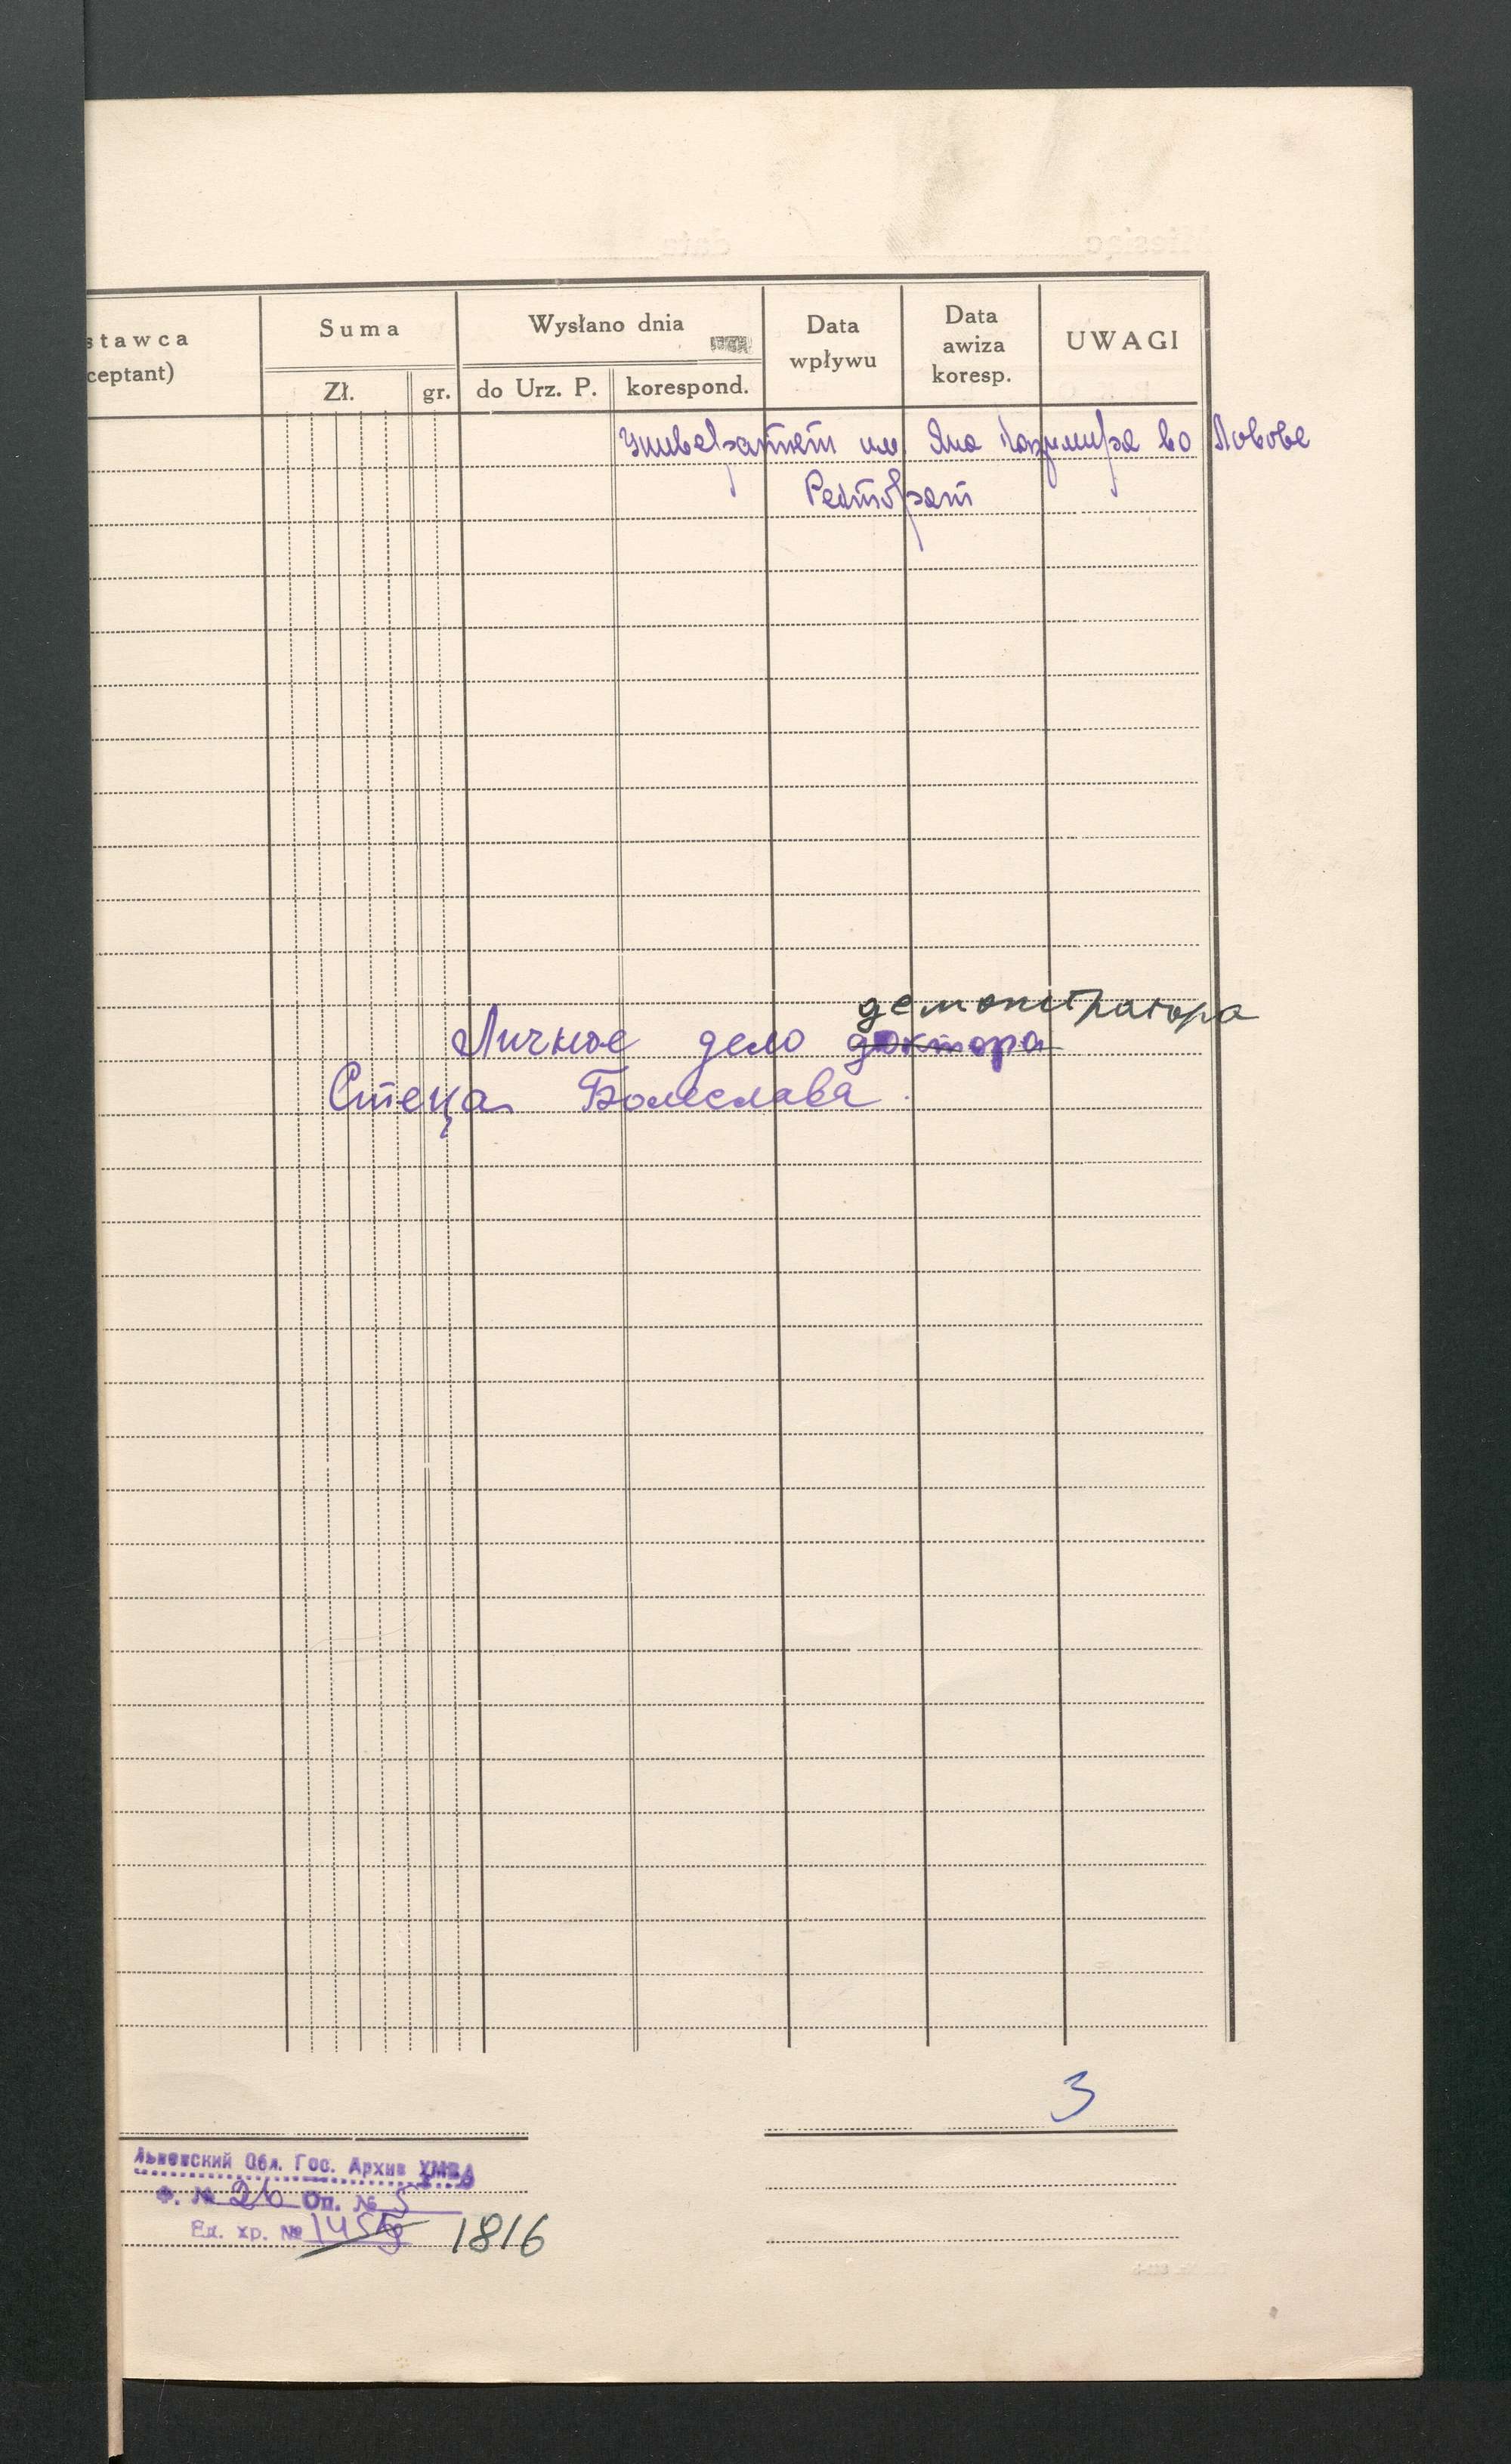 stawca
ceptant)
Suma
Zł.
gr.
Wysłano dnia
do Urz. P.
korespond.
Data
wpływu
Data
awiza
koresp.
UWAGI
Университет им Яна Казимира во Львове
Ректорат
демонстратора
Личное дело доктора
Стеца Болеслава.
3
Львовский Обл. Гос. Архив УМВД
Ф. № 26 Оп. № 5
Ед. хр. № 1816